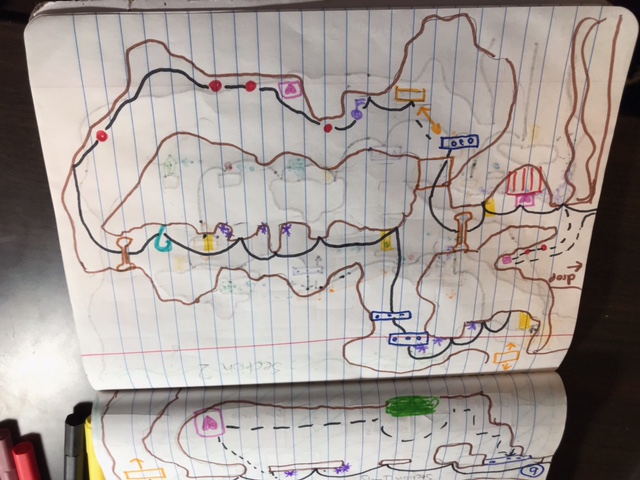 Section 2
drop
6